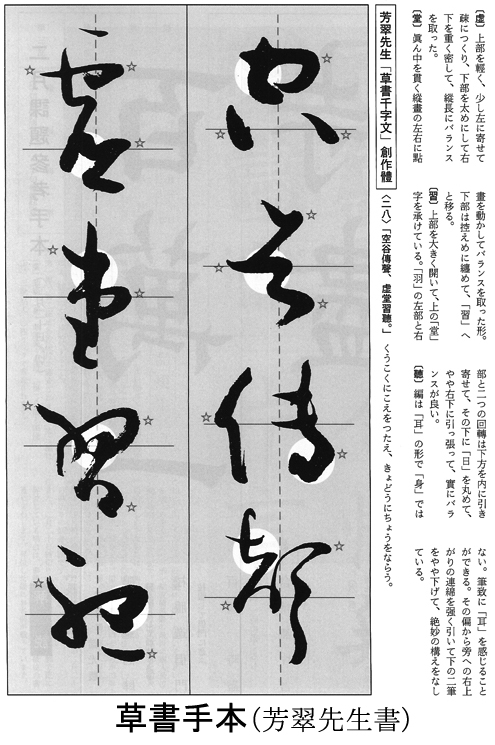 〔虚〕上部を輕く、少し左に寄せて
疎につくり、下部を太めにして右
下を重く密して、縦長にバランス
を取った。
〔堂〕眞ん中を貫く縦畫の左右に點
畫を動かしてバランスを取った形。
下部は控えめに纏めて、「習」へ
と移る。
〔習〕上部を大きく開いて、上の「堂」
字を承けている。「羽」の左部と右
部と二つの回轉は下方を内に引き
寄せて、その下に「日」を丸めて、
やや右下に引っ張って、實にバラ
ンスが良い。
〔聽〕編は「耳」の形で「身」では
ない。筆致に「耳」を感じること
ができる。その偏から旁への右上
がりの連綿を強く引いて下の二筆
をやや下げて、絶妙の構えをなし
ている。
芳翠先生「草書千字文」創作體
〈二八〉「空谷傳聲、虚堂習聽。」くうこくにこえをつたえ、きょどうにちょうをならう。
空谷傳聲
虚堂習聽
草書手本(芳翠先生書)